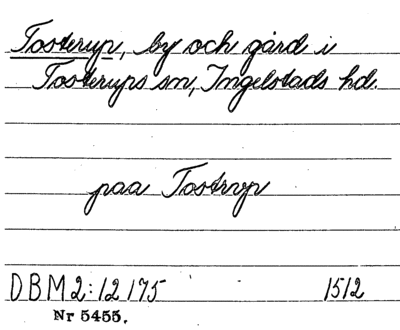 Tosterup, by och gård i
Tosterups sn, Ingelstads hd.
paa Tostrvp
DBM2:12 175 1512
Nr 5455.